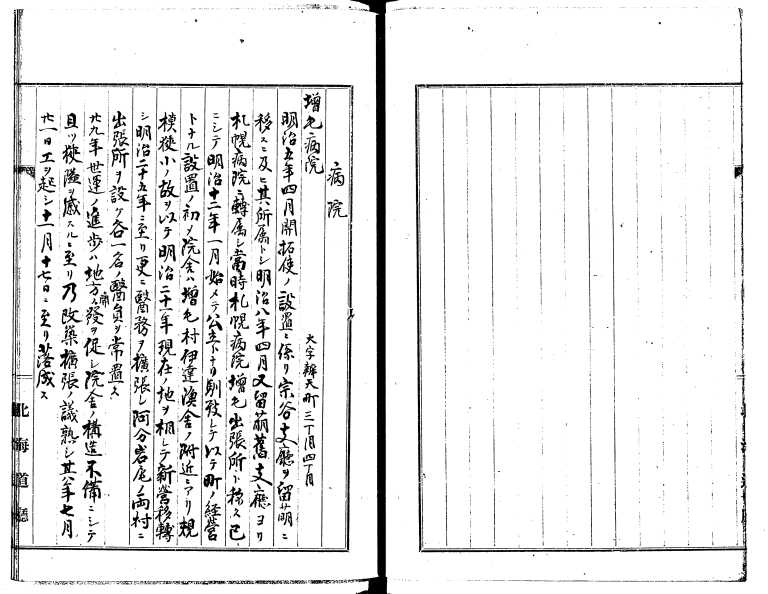 病院
増毛病院
大字辨天町三丁目四丁目
明治五年四月開拓使ノ設置ニ係リ宗谷支廳ヲ留萠ニ
移スニ及ヒ其所属トシ明治八年四月又留萠舊支廳ヨリ
札幌病院ニ轉属シ當時札幌病院増毛出張所ト称ス已
ニシテ明治十二年一月始メテ公立トナリ則致シテ以テ町ノ経営
トナル設置ノ初メ院舎ハ増毛村伊達漁舎ノ附近ニアリ規
模狭小ノ故ヲ以テ明治二十一年現在ノ地ヲ相シテ新営移轉
シ明治二十五年ニ至リ更ニ醫務ヲ擴張シ阿分岩尾ノ両村ニ
出張所ヲ設ケ各一名ノ醫員ヲ常置ス
廿九年世運ノ進歩ハ地方ノ開發ヲ促シ院舎ノ構造不備ニシテ
且ツ狭隘ヲ感スルニ至リ乃改築擴張ノ議熟シ其年七月
廿一日工ヲ起シ十一月十七日ニ至リ落成ス
北海道廳